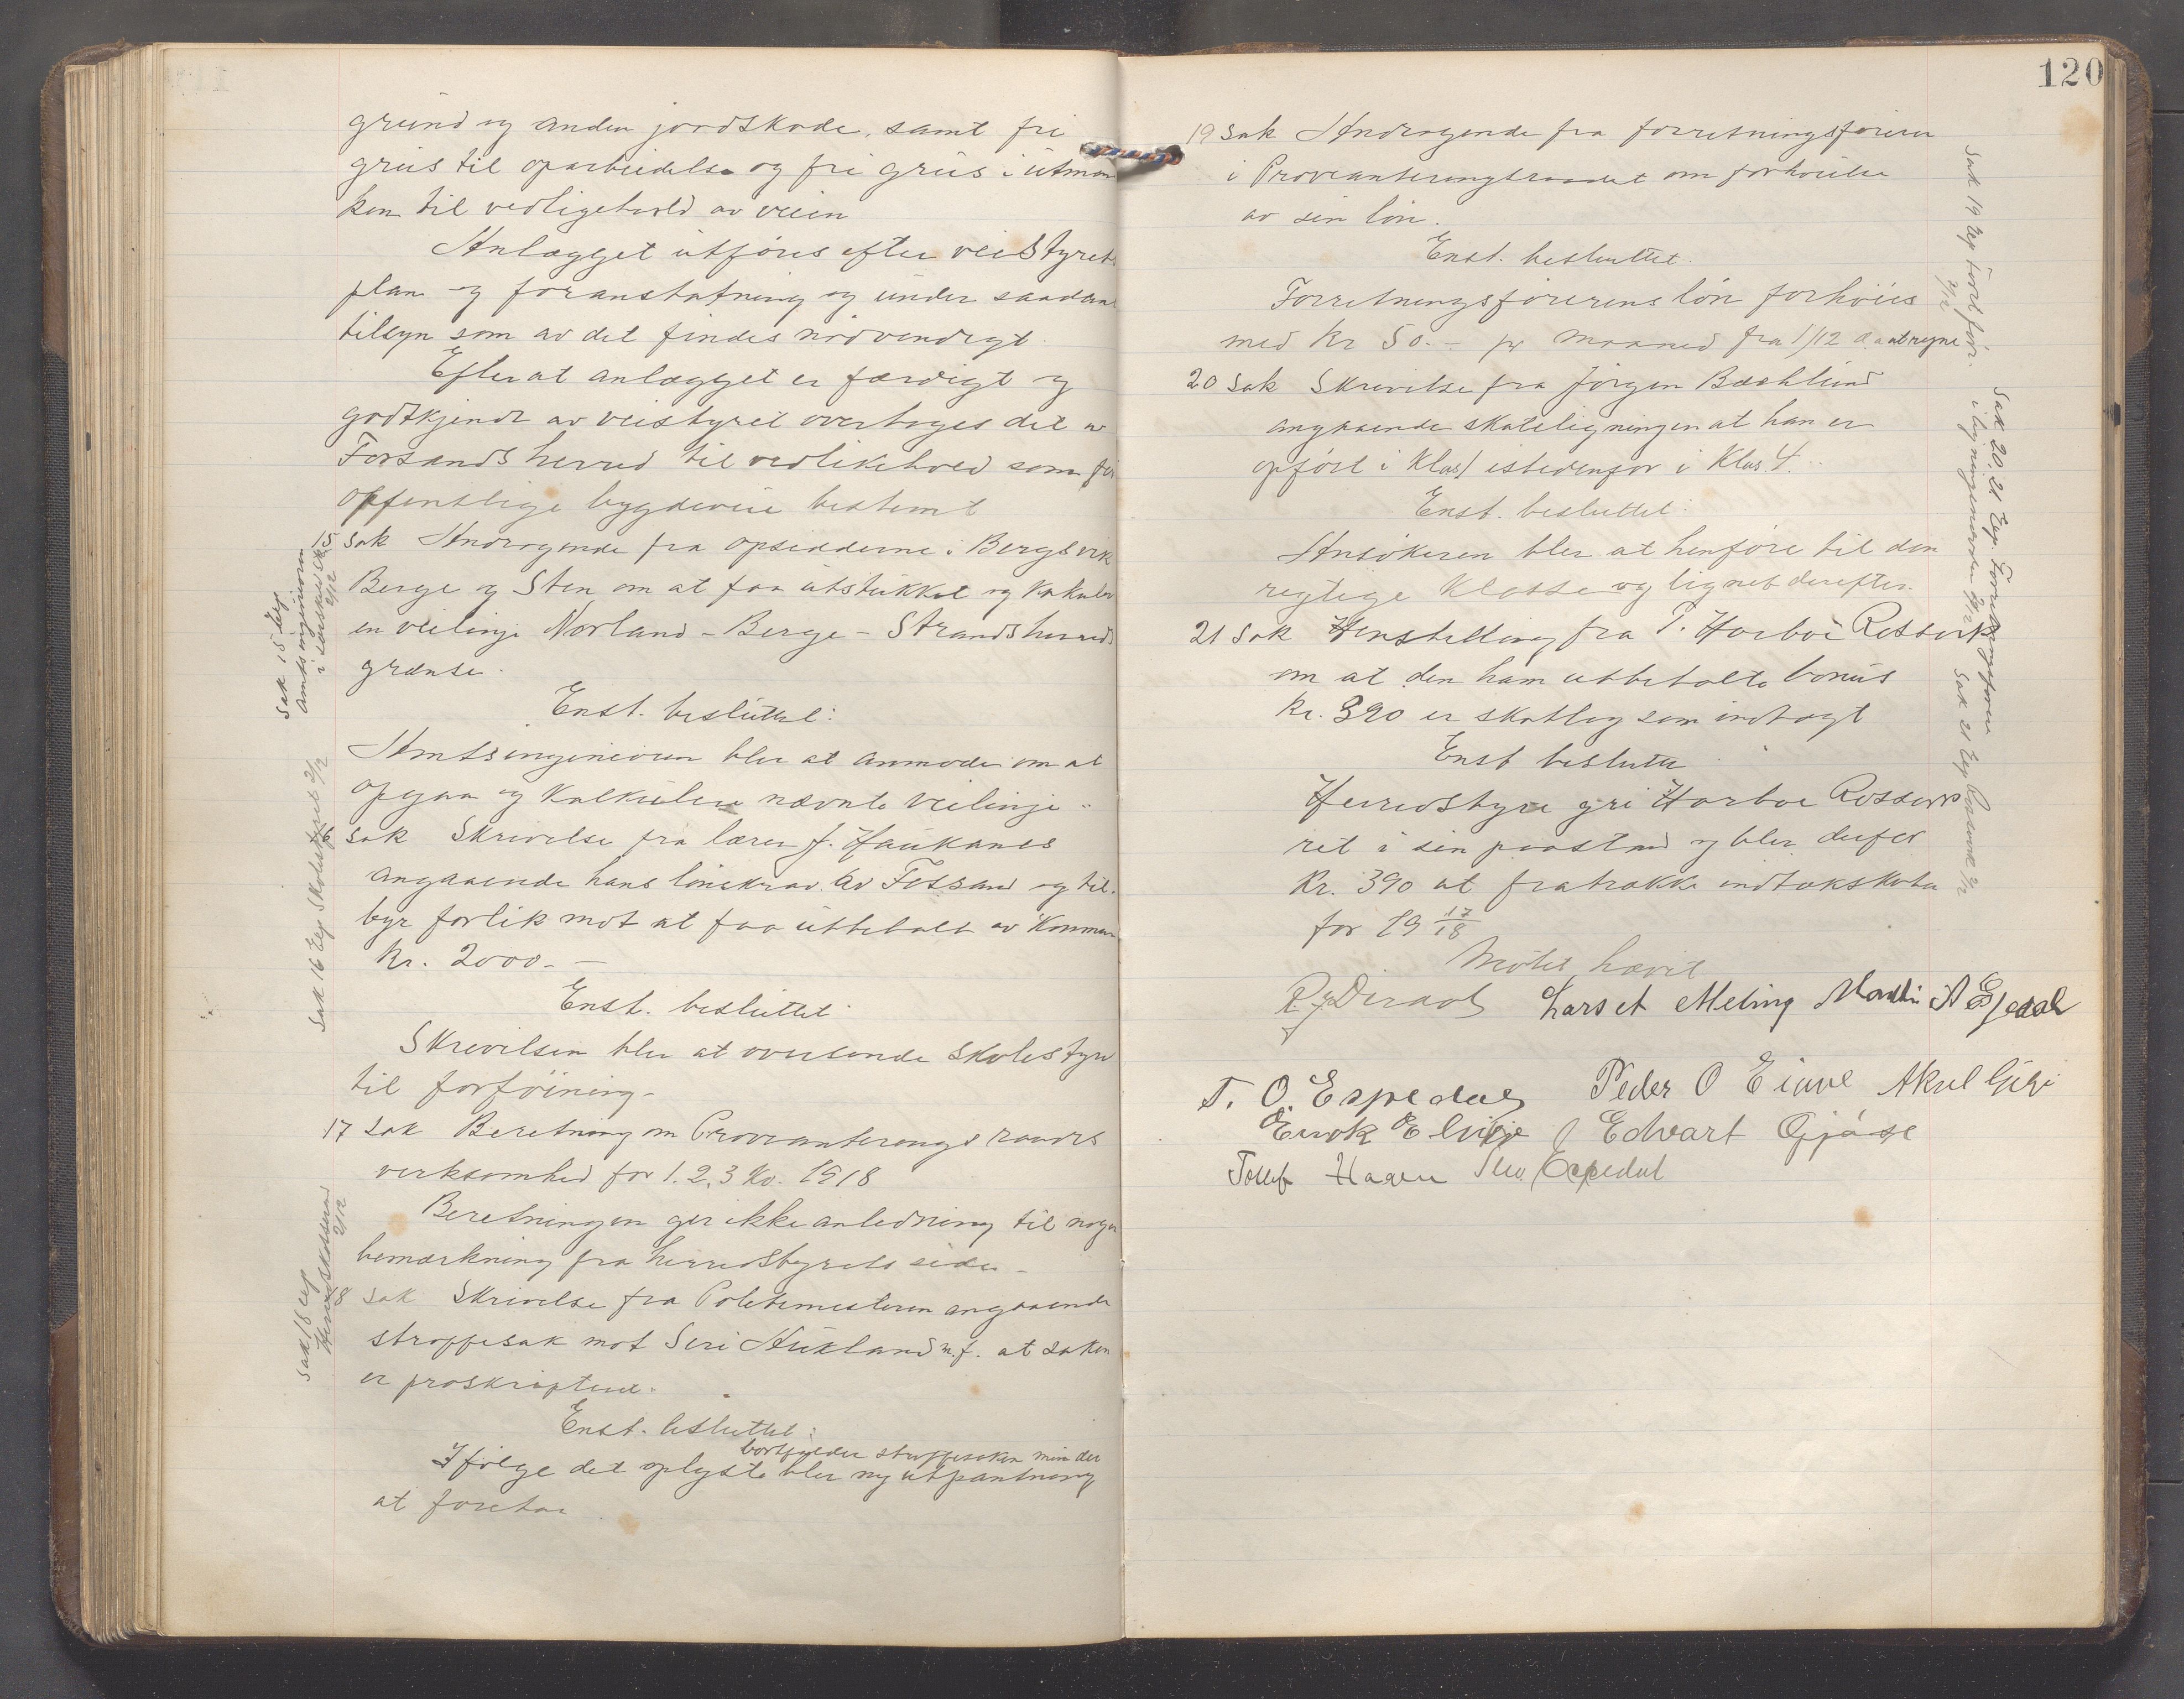 grund og anden jordskade, samt fri
grus til oparbeidelse og fri grus i utmar
ken til vedligehold av veien
Anlægget utføres efter veistyrets
plan og foranstatning og under saadant
tilsyn som av det findes nødvendigt.
Efterat anlægget er færdigt og
godtkjendt av veistyret overtages det av
Forsands herred til vedlikehold som for
offentlige bygdeveie bestemt
15 sak Andragende fra opsidderne i Bergsvik
Berge og Sten om at faa utstukket og kalkuler
en veilinje Norland - Berge - Strands herreds
grænse.
Enst. besluttet:
Amtsingeniøren blir at anmode om at
opgaa og kalkulere nævnte veilinje.
16 sak Skrivelse fra lærer J. Haukanes
angaaende hans lønskrav av Fossand og til-
byr forlik mot at faa utbetalt av Kommun
Kr. 2000.-
Enst. besluttet
Skrivelsen blir at oversende Skolestyre
til forføining.
17 sak Beretning om Provianteringsraadets
verksomhed for 1. 2. 3 Kv. 1918
Beretningen gir ikke anledning til nogen
bemærkning fra herredstyrets side.
18 sak Skrivelse fra Politimesteren angaaende
straffesak mot Seri Aukland m.f. at saken
er proskriptent.
Enst. besluttet:
bortfalder straffesaken men der
Ifølge det oplyste blir ny utpantning
at foreta
Sak 15 Exp
Amtsingeniøren
2/12
Sak 16 Exp Skolestyret 2/12
Sak 18 exp
Herredskasseren
2/12
120
19 sak Andragende fra forretningsføreren
i Provianteringsraadet om forhøielse
av sin løn.
Enst. besluttet.
Forretningsførerens løn forhøies
med Kr 50.- pr maaned fra 1/12 d.a at regne
20 sak Skrivelse fra Jørgen Bæshlund
angaaende skateligningen at han er
opført i Klas 1 istedenfor i Klas 4.
Enst. besluttet:
Ansøkeren blir at henføre til den
regtige Klasse og lignet derefter.
21 sak Henstilling fra P. Harboe Rossevik
om at den ham utbetalte bonus
Kr. 390 er skatlag som indtægt
Enst beslutte
Herredstyre gir Harboe Rossevik
ret i sin paastand og blir derfor
Kr. 390 at fratrække indtækskatu
for 19 17/18
Møtet hævet
Lars A Meling Martin A Espedal
T. O. Espedal Peder O Eiane Aksel Gilje
Enok Eligje Edvart Gjøse
Tollef Haaen Espedal
Sak 19 Exp
2/12
Sak 20. 21 Exp. Forretningsfører
2/12
Sak 21 Exp Rossevik 2/12